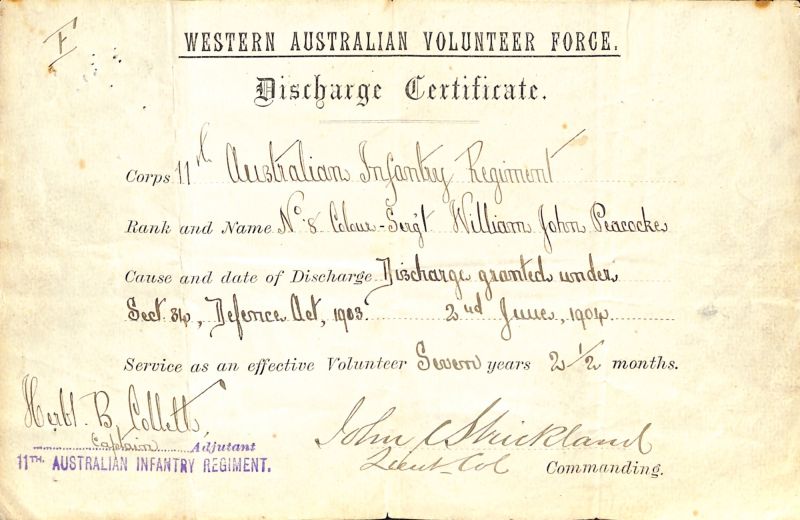 F
WESTERN AUSTRALIAN VOLUNTEER FORCE.
Discharge Certificate.
Corps 11th Australian Infantry Regiment
Rank and Name No. 8 Colour-Sergt William John Peacocke
Cause and date of Discharge Discharge granted under
Sect. 34, Defence Act, 1903. 2nd June, 1904.
Service as an effective Volunteer Seven years 2 1/2 months.
Herbt. B. Collett,
Captain Adjutant
11TH. AUSTRALIAN INFANTRY REGIMENT.
John C Strickland
Lieut-Col Commanding.